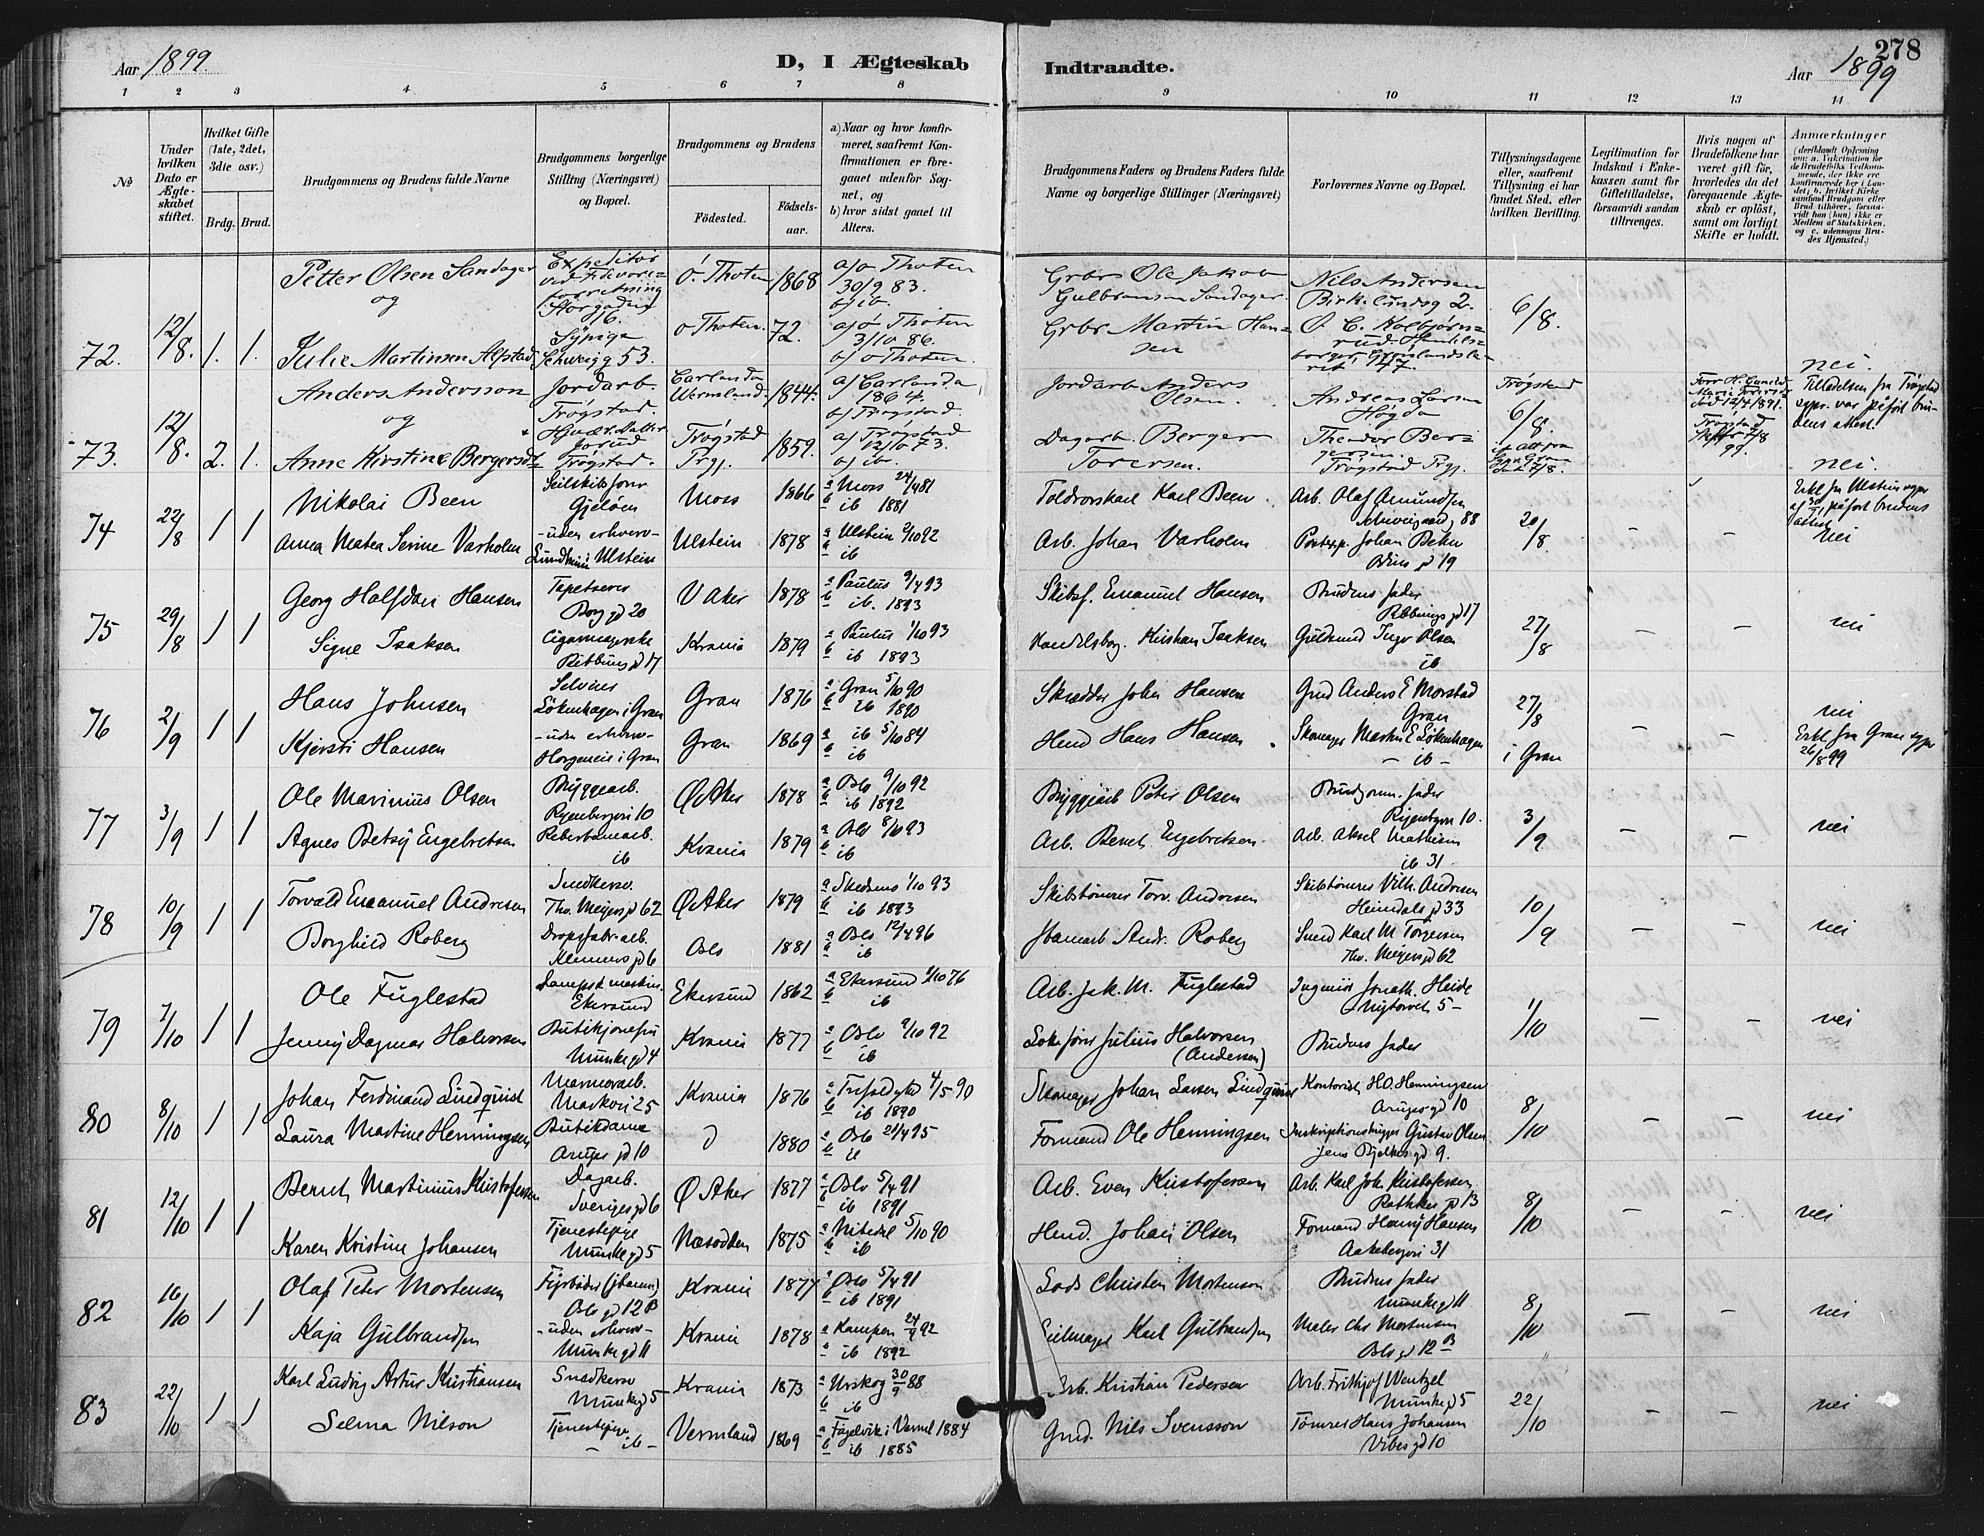 Aar 1899.
D, I Ægteskab
Indtraadte.
Aar 1899
278
1 2 3 4 5 6 7 8 9 10 11 12 13 14
No
Under hvilken Dato er Ægteskabet stiftet.
Hvilket Gifte (1ste, 2det, 3dte osv.)
Brdg. Brud.
Brudgommens og Brudens fulde Navne
Brudgommens borgerlige Stilling (Næringsvei) og Bopæl.
Brudgommens og Brudens
Fødested.
Fødselsaar.
a) Naar og hvor konfirmeret, saafremt Konfirmationen er foregaaet udenfor Sognet, og
b) hvor sidst gaaet til Alters.
Brudgommens Faders og Brudens Faders fulde Navne og borgerlige Stillinger (Næringsvei)
Forlovernes Navne og Bopæl.
Tillysningsdagene eller, saafremt Tillysning ei har fundet Sted, efter hvilken Bevilling.
Legitimation for Indskud i Enkekassen samt for Giftetilladelse, forsaavidt saadan tiltrænges.
Hvis nogen af Brudefolkene har været gift før, hvorledes da det foregaaende Ægteskab er opløst, samt om lovligt Skifte er holdt.
Anmærkninger
72. 12/8. 1. 1.
Petter Olsen Sandager
og
Julie Martinsen Alfstad
Expeditør
Storgaden 16.
Sypige
Schweigg 53.
Ø. Thoten 1868
ø Thoten. 72.
a) ø Thoten
30/9 83.
b) ib.
a) ø Thoten
3/10 86.
b) ø Thoten
Grbr Ole Jakob
Gulbransen Sandager
Grbr Martin Hansen
Nils Andersen
Birk. lundsg 2.
6/8.
nei.
73. 12/8. 2. 1.
Anders Andersson
og
Anne Kirstine Bergersdt
Jordarb.
Trøgstad.
Trøgstad.
Carlanda
Wermland. 1844.
Trøgstad
Prgj. 1859.
a) Carlanda
1864.
b) Trøgstad.
a) Trøgstad
12/10 73.
b) ib.
Jordarb Anders
Olsen.
Dagarb. Berger
Torersen.
Andreas Larsen
Høgda
Theodor Bergersen
Trøgstad Prgj.
Trøgstad
6/8.
nei.
74 22/8 1 1
Nikolai Been
Anna Matea Serine Varholm
Seilskibsfører
Gjeløen
- uden erhverv -
Ulstein
Moss 1866
Ulstein 1878
a Moss 24/4 81
b ib 1881
a Ulstein 2/10 92
b ib
Toldvorskarl Karl Been
Arb. Johan Varholm
Arb. Olaf Amundsen
Schweigaardg 88
20/8. - -
nei
75 29/8 1 1
Georg Halfdan Hansen
Signe Isaksen
Tapetserer
Borg gd 20
Cigarmagerske
Ribbungd 17
V Aker 1878
Krania 1879
a Paulus 9/4 93
b ib. 1893
a Paulus 1/10 93
b ib 1893
Skibsf. Emanuel Hansen
Handelsbog. Kristian Isaksen
Brudens fader
Ribbungs gd 17
Guldsmed Ingv Olsen
ib
27/8 - -
nei
76 2/9 1 1
Hans Johnsen
Kjersti Hansen
Selveier
Løkenhagen i Gran
- uden erhverv -
Horgeneie i Gran
Gran 1876
Gran 1869
a Gran 5/10 90
b ib 1890
a ib 5/10 84
b ib
Skrædder John Hansen
Husmd Hans Hansen
Gmd Anders E Morstad
Gran
Skomager Martin E Løkenhagen
- ib -
27/8
i Gran
nei
Erkl fra Gran
26/8 99
77 3/9 1 1
Ole Marinius Olsen
Agnes Betsy Engebretsen
Bryggearb.
Ryenbergvei 10
Reberbanearb.
ib
Ø Aker 1878
Krania 1879
a Oslo 9/10 92
b ib 1892
a Oslo 8/10 93
b ib
Bryggearb Peter Olsen
Arb. Bernt Engebretsen
Brudgomm. fader
Ryenbgvn 10.
Arb. Aksel Mathisen
ib 31
3/9 - -
nei
78 10/9 1 1
Torvald Emanuel Andresen
Borghild Roberg
Snedkersv.
Thv. Meyers gd 62
Dropsfabr. arb.
Klemens gd 6
Ø Aker 1879
Oslo 1881
b ib 1893
a Oslo 12/4 96
b ib
Skibstømrer Torv. Andresen
Jbanearb Andr. Roberg
Skibstømrer Vilh. Andresen
Heimdals gd 33
Smed Karl M Torgersen
Thv. Meyers gd 62
10/9 - -
nei
79 1/10 1 1
Ole Fuglestad
Jenny Dagmar Halvorsen
Dampsk maskin.
Ekersund
Butikjomfru
Munkegd 4
Ekersund 1862
Krania 1877
a Ekersund 1/10 76
b ib
a Oslo 9/10 92
b ib
Arb. Jak. M. Fuglestad
Lokofører Julius Halvorsen
(Andersen)
Ingeniør Jonath. Heide
Nytorvet 5 -
Brudens fader
1/10 - -
nei
80 8/10 1 1
Johan Ferdinand Lindquist
Laura Martine Henningsen
Marmorarb.
Markvei 25
Butikdame
Arups gd 10
Krania 1876
D 1880
a Trefoldght 4/5 90
b ib 1890
a Oslo 21/4 95
b ib
Skomager Johan Larsen Lindquist
Formand Ole Henningsen
Kontorist H.O. Henningsen
Arups gd 10
Inskriptionshugger Gustav Olsen
Jens Bjelkes gd 9.
8/10 - -
nei
81 12/10 1 1
Bernth Martinius Kristofersen
Karen Kristine Johansen
Dagarb.
Sveriges gd 6
Tjenestepige
Munkegd 5
Ø Aker 1877
Næsodden 1875
a Oslo 5/4 91
b ib 1891
a Nitedal 5/10 90
b ib
Arb. Even Kristofersen
Husmd. Johan Olsen
Arb. Karl Joh. Kristofersen
Rathkes gd 13
Formand Henry Hansen
Aakebergvei 31
8/10 - -
nei
82 16/10 1 1
Olaf Peter Mortensen
Kaja Gulbrandsen
Fyrbøder (jbanen)
Oslo gd 12 B
- uden erhverv -
Munkegd 11
Krania 1877
Krania 1878
a Oslo 5/4 91
b ib 1891
a Kampen 24/4 92
b ib 1892
Lods Christen Mortensen
Seilmager Karl Gulbrandsen
Brudens fader
Munkegd 11
Maler Chr Mortensen
Oslo gd 12 B
8/10 - -
nei
83 22/10 1 1
Karl Ludvig Artur Kristiansen
Selma Nilson
Snedkersv
Munkegd 5
Tjenestepige
- ib -
Krania 1873
Vermland 1869
a Urskog 30/9 88
b ib
a Fogelvik i Verml 1884
b ib 1885
Arb. Kristian Pedersen
Gmd. Nils Svensson
Arb. Frithjof Wentzel
Munkegd 5
Tømrer Hans Johansen
Vibes gd 10
22/10 - -
nei